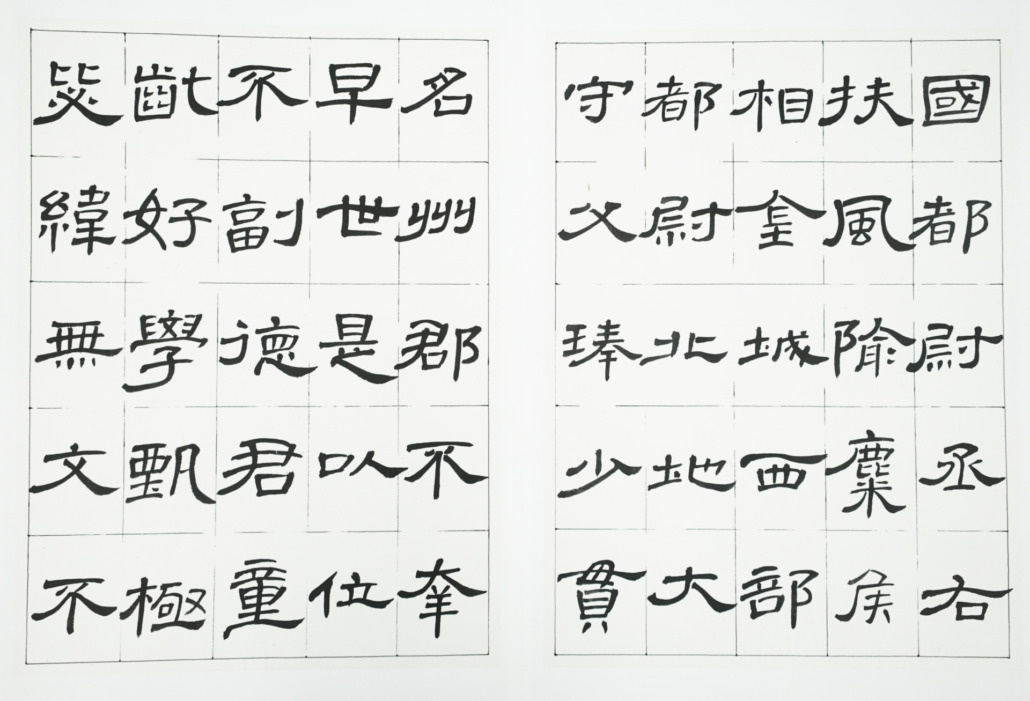 國都尉丞右
扶風隃麋侯
相金城西部
都尉北地大
守父琫少貫
名州郡不幸
早世是以位
不副德君童
齔好學甄極
毖緯無文不